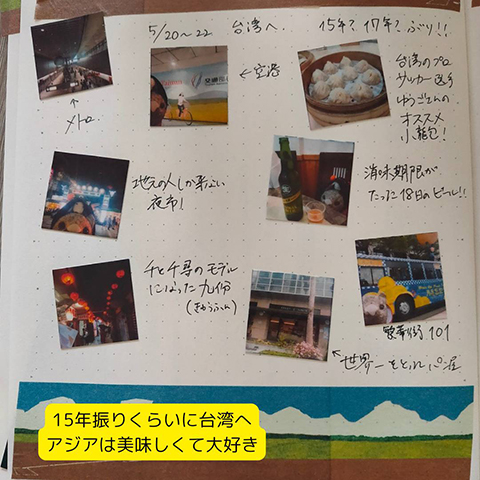 5/20～22 台湾へ. 15年? 17年? ぶり!!
←空港
↑
メトロ.
台湾のプロ
サッカー選手
ゆうごさんの
オススメ
小籠包!
地元の人しか来ない
夜市!
消味期限が
たった18日のビール!!
千と千尋のモデル
になった九份
(きゅうふん)
101
←世界一をとれたパン屋
15年振りくらいに台湾へ
アジアは美味しくて大好き